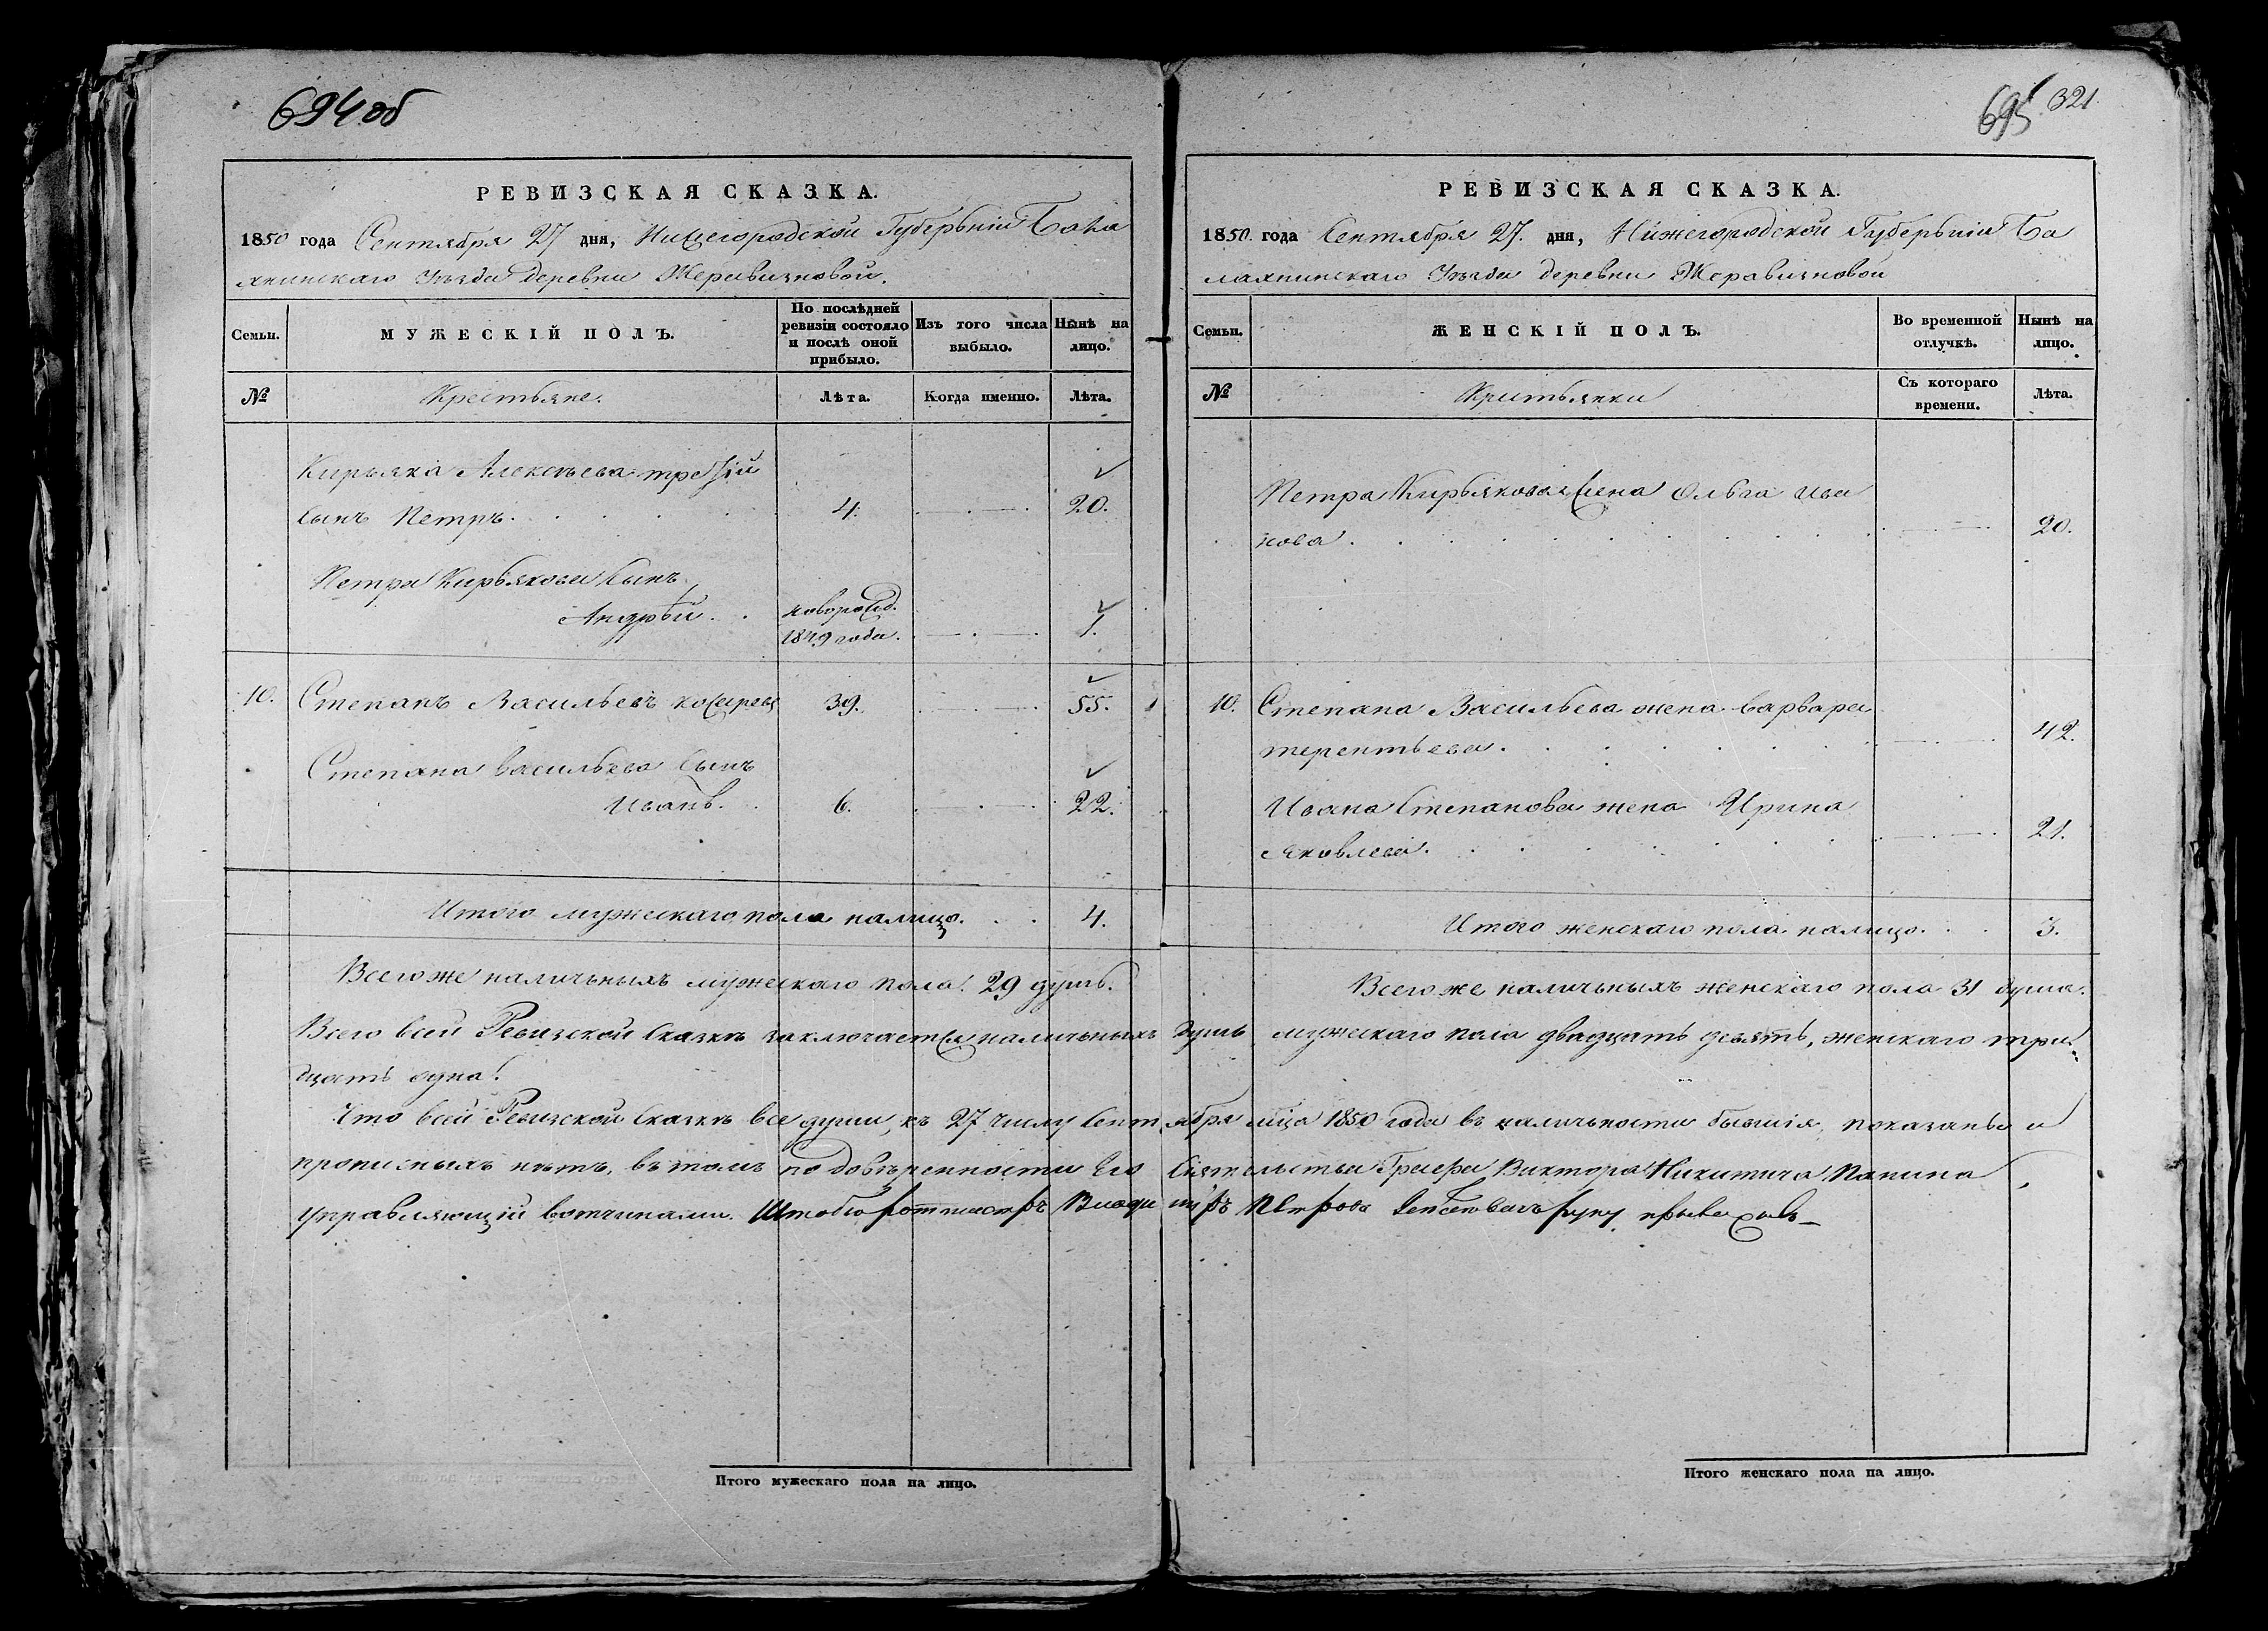 694 об
РЕВИЗСКАЯ СКАЗКА.
1850 года Сентября 27 дня, Нижегородской Губерьніи Бала
хнинскаго Уѣзда деревни Жеравихновой.
Семьи.
МУЖЕСКІЙ ПОЛЪ.
По послѣдней ревизіи состояло и послѣ оной прибыло.
Изъ того числа выбыло.
Нынѣ на лицо.
№
Крестьяне.
Лѣта.
Когда именно.
Лѣта.
Кирьяка Алексѣева третій
сынъ Петръ. 4. 20.
Петра Кирьякова сынъ
Андрѣй. новорожд. 1849 года. 1.
10. Степанъ Васильевъ 39. 55.
Степана Васильева сынъ
Иванъ. 6. 22.
Итого мужескаго пола налицо. 4.
Всего же наличьныхъ мужескаго пола 29 душъ.
695 321
РЕВИЗСКАЯ СКАЗКА.
1850. года Сентября 27. дня, Нижегородской Губерьніи Ба
лахнинскаго Уѣзда деревни Жеравихновой
Семьи.
ЖЕНСКІЙ ПОЛЪ.
Во временной отлучкѣ.
Нынѣ на лицо.
№
Кристьянки
Съ котораго времени.
Лѣта.
Петра Кирьякова жена Ольга Ива
нова. 20.
10. Степана Васильева жена Варвара
Терентьева. 42.
Ивана Степанова жена Ирина
Яковлева. 21.
Итого женскаго пола налицо. 3.
Всего же наличьныхъ женскаго пола 31 душа.
Всего всей Ревизской Сказкѣ заключается наличьныхъ душъ мужескаго пола двадцать девять, женскаго три
дцать одна.
Что всей Ревизской Сказкѣ все души, къ 27 числу Сентября мѣца 1850 года въ наличьности бывшія, показаны и
прописныхъ нѣтъ, въ томъ по довѣренности Его Сіятельства Графа Виктора Никитича Панина
управляющій вотчинами. Штабсъ ротмистръ Владимiръ Петровъ руку приложилъ
Итого мужескаго пола на лицо.
Итого женскаго пола на лицо.